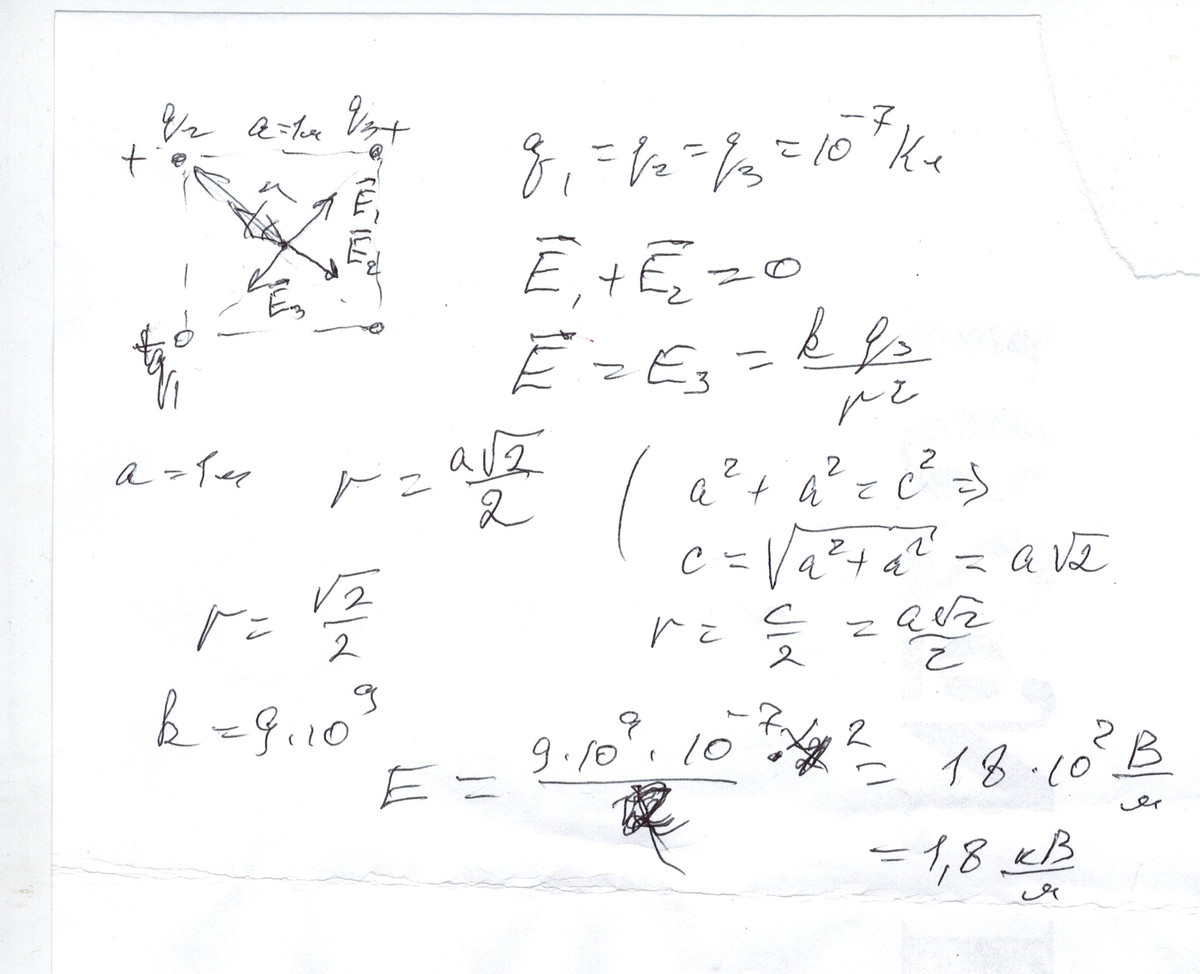 q₂ a=1м q₃+
+
E⃗₁
E⃗₂
E⃗₃
q₁
q₁ = q₂ = q₃ = 10⁻⁷ Кл
E⃗₁ + E⃗₂ = 0
E⃗ = E₃ = k q₃ / r²
a = 1м r = a√2 / 2 ( a² + a² = c² ⇒
c = √(a² + a²) = a√2
r = √2 / 2 r = c / 2 = a√2 / 2
k = 9·10⁹
E = 9·10⁹ · 10⁻⁷ · 2 = 18·10² В/м
= 1,8 кВ/м